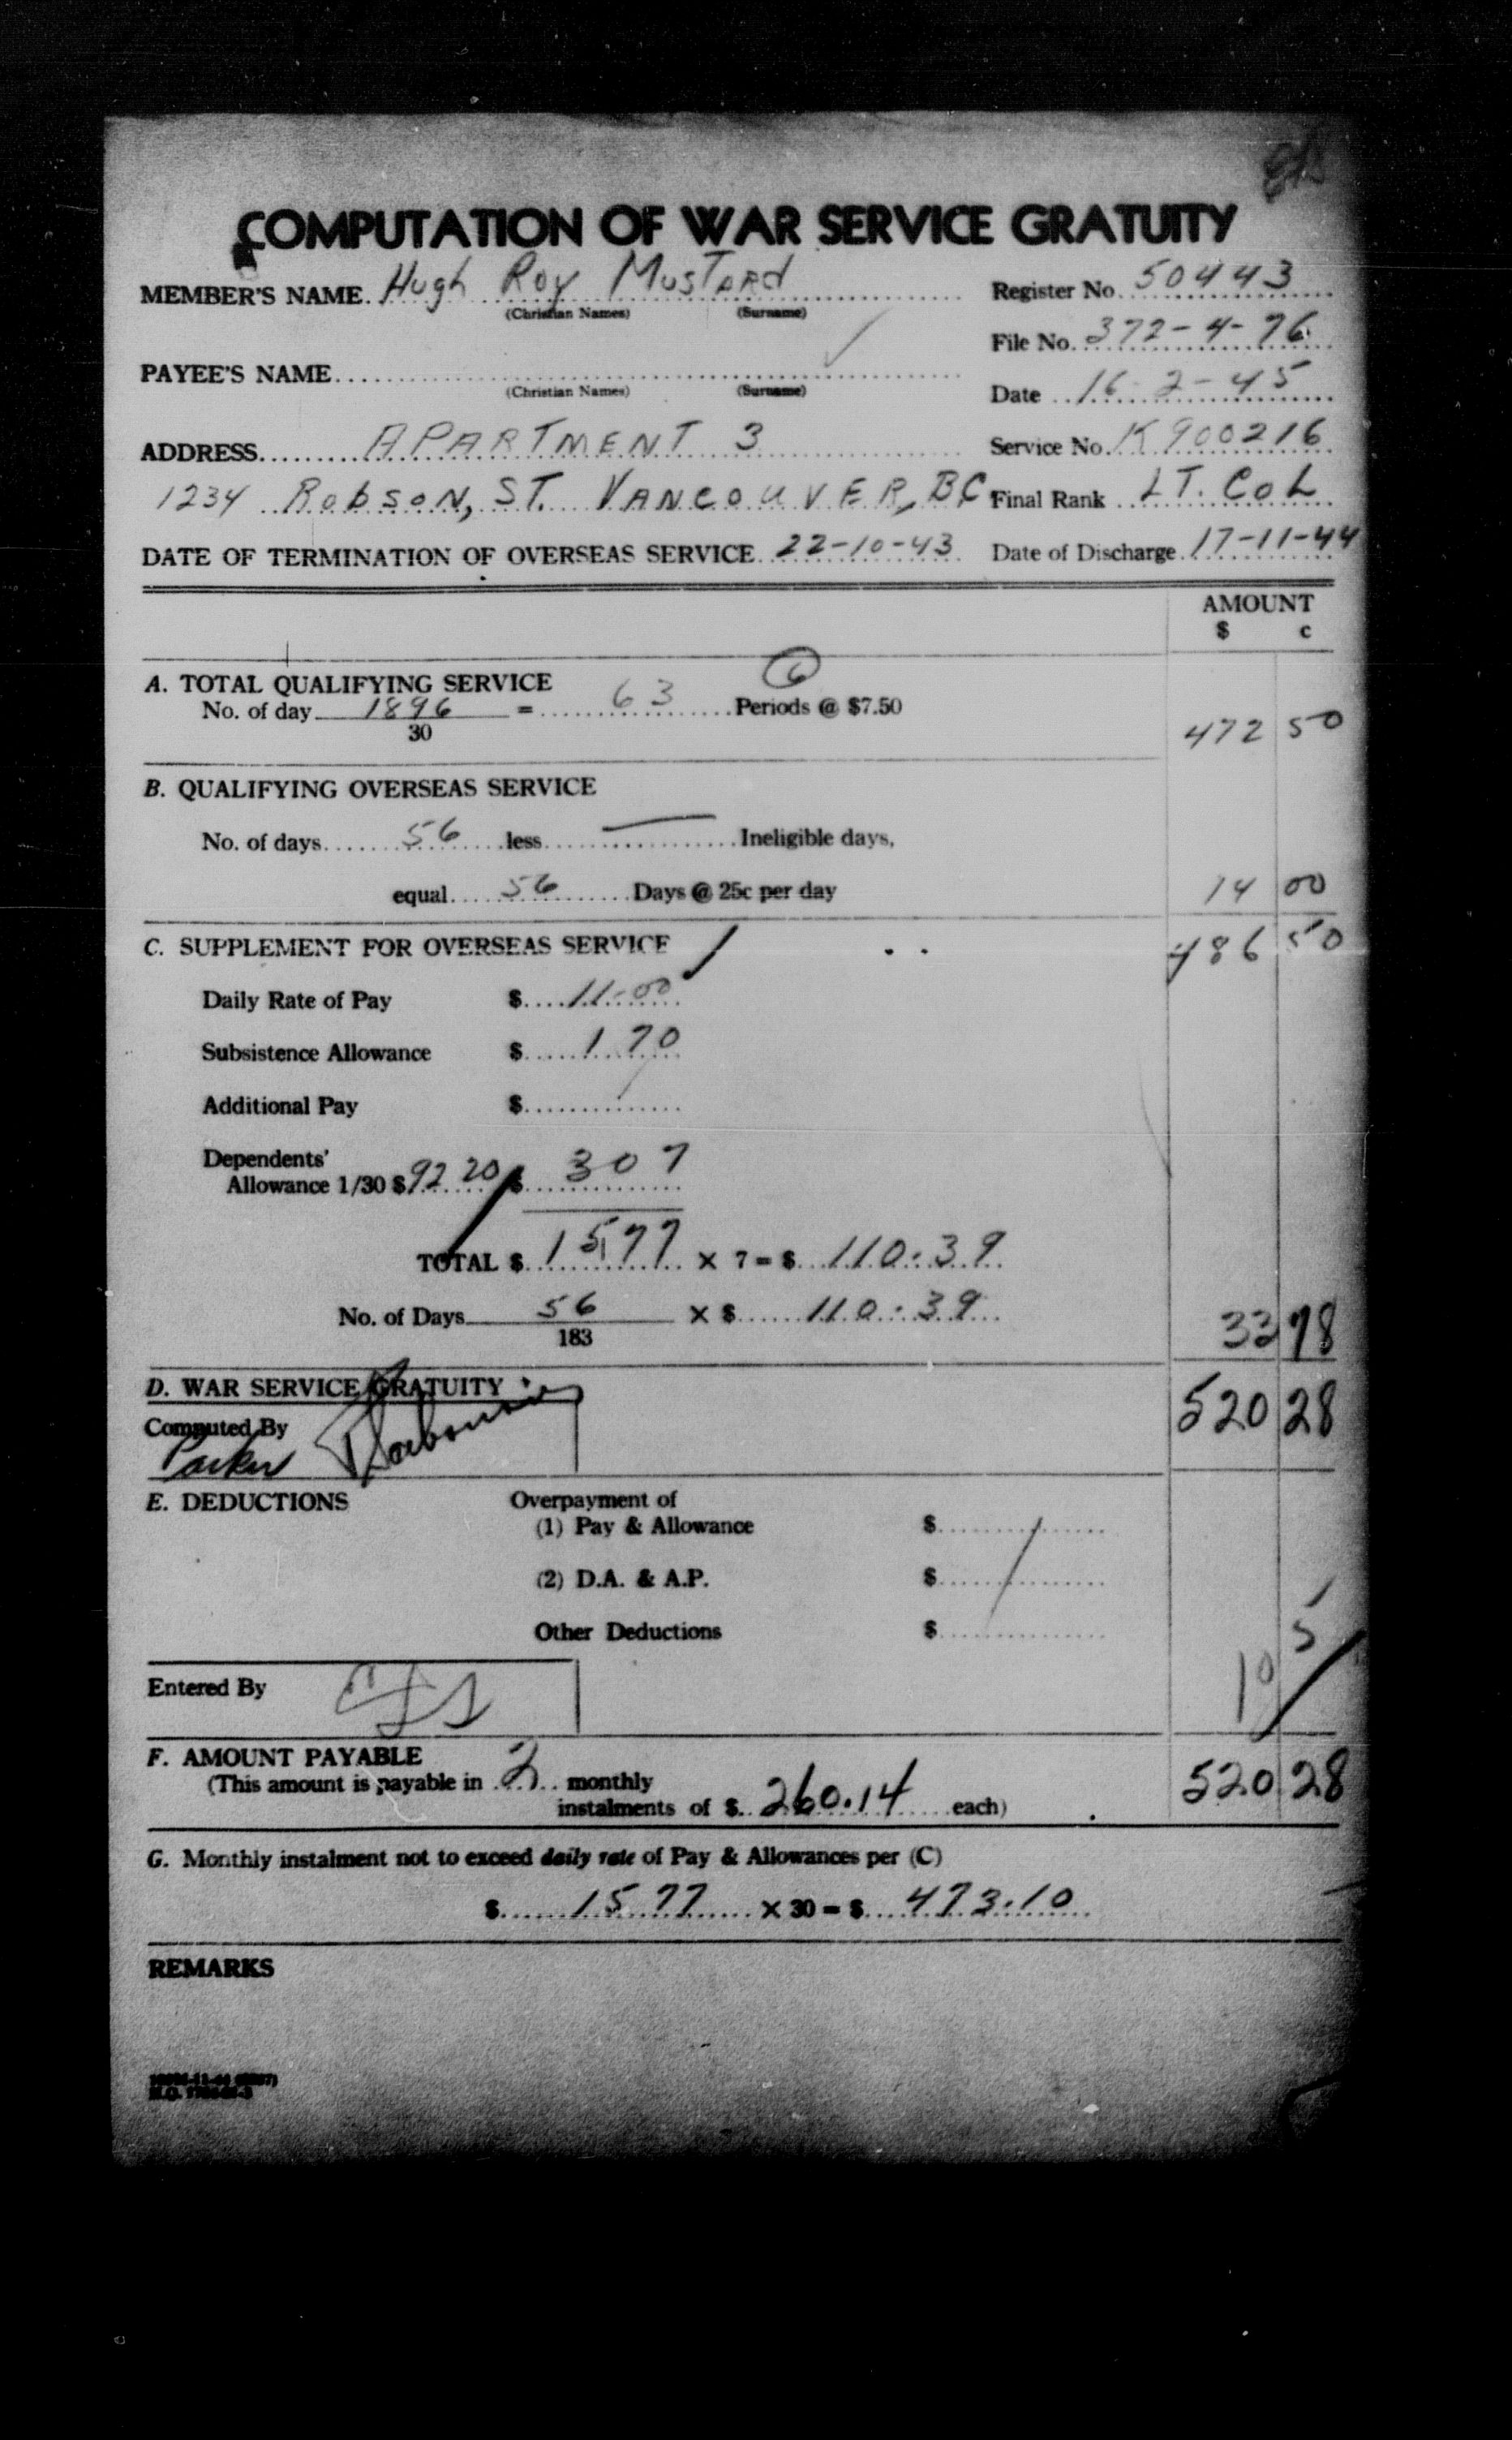 COMPUTATION OF WAR SERVICE GRATUITY
MEMBER'S NAME. Hugh Roy Mustard
(Christian Names) (Surname)
Register No. 50443
File No. 372-4-76
PAYEE'S NAME
(Christian Names) (Surname)
Date 16-2-45
ADDRESS APARTMENT 3
Service No. K900216
1234 Robson, ST. VANCOUVER, BC
Final Rank LT. COL
DATE OF TERMINATION OF OVERSEAS SERVICE 22-10-43
Date of Discharge 17-11-44
AMOUNT
$ c
A. TOTAL QUALIFYING SERVICE 6
No. of day 1896 = 63 Periods @ $7.50
30
472 50
B. QUALIFYING OVERSEAS SERVICE
No. of days 56 less — Ineligible days,
equal 56 Days @ 25c per day 14 00
C. SUPPLEMENT FOR OVERSEAS SERVICE 486 50
Daily Rate of Pay $ 11-00
Subsistence Allowance $ 1 70
Additional Pay $
Dependents'
Allowance 1/30 $ 92 20 $ 3 07
TOTAL $ 15 77 × 7 = $ 110.39
No. of Days 56 × $ 110.39
183
33 78
D. WAR SERVICE GRATUITY
520 28
Computed By
Parker
E. DEDUCTIONS Overpayment of
(1) Pay & Allowance $
(2) D.A. & A.P. $
Other Deductions $
Entered By
F. AMOUNT PAYABLE
(This amount is payable in 2 monthly
instalments of $ 260.14 each)
520 28
G. Monthly instalment not to exceed daily rate of Pay & Allowances per (C)
$ 15 77 × 30 = $ 473.10
REMARKS